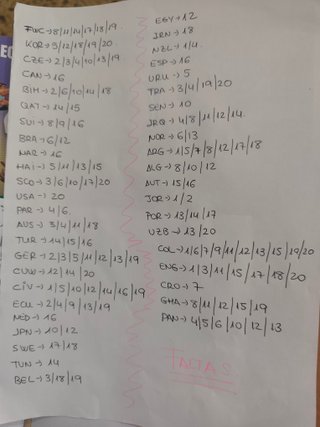 FWC → 8/11/14/17/18/19
KOR → 5/12/18/19/20
CZE → 2/3/4/10/13/19
CAN → 16
BIH → 2/6/10/14/18
QAT → 14/15
SUI → 8/9/16
BRA → 6/12
MAR → 16
HAI → 5/11/13/15
SCO → 3/6/10/17/20
USA → 20
PAR → 4/6
AUS → 3/4/11/18
TUR → 14/15/16
GER → 2/3/5/11/12/13/19
CUW → 12/14/20
CIV → 1/5/10/12/14/16/19
ECU → 2/4/9/13/19
NED → 16
JPN → 10/12
SWE → 17/18
TUN → 14
BEL → 3/18/19
EGY → 12
IRN → 18
NZL → 1/4
ESP → 16
URU → 5
FRA → 3/4/19/20
SEN → 10
IRQ → 4/8/11/12/14
NOR → 6/13
ARG → 1/5/7/8/12/17/18
ALG → 8/10/12
AUT → 15/16
JOR → 1/2
POR → 13/14/17
UZB → 13/20
COL → 1/6/7/9/11/12/13/15/19/20
ENG → 1/3/11/15/17/18/20
CRO → 7
GHA → 8/11/12/15/19
PAN → 4/5/6/10/12/13
FALTAS